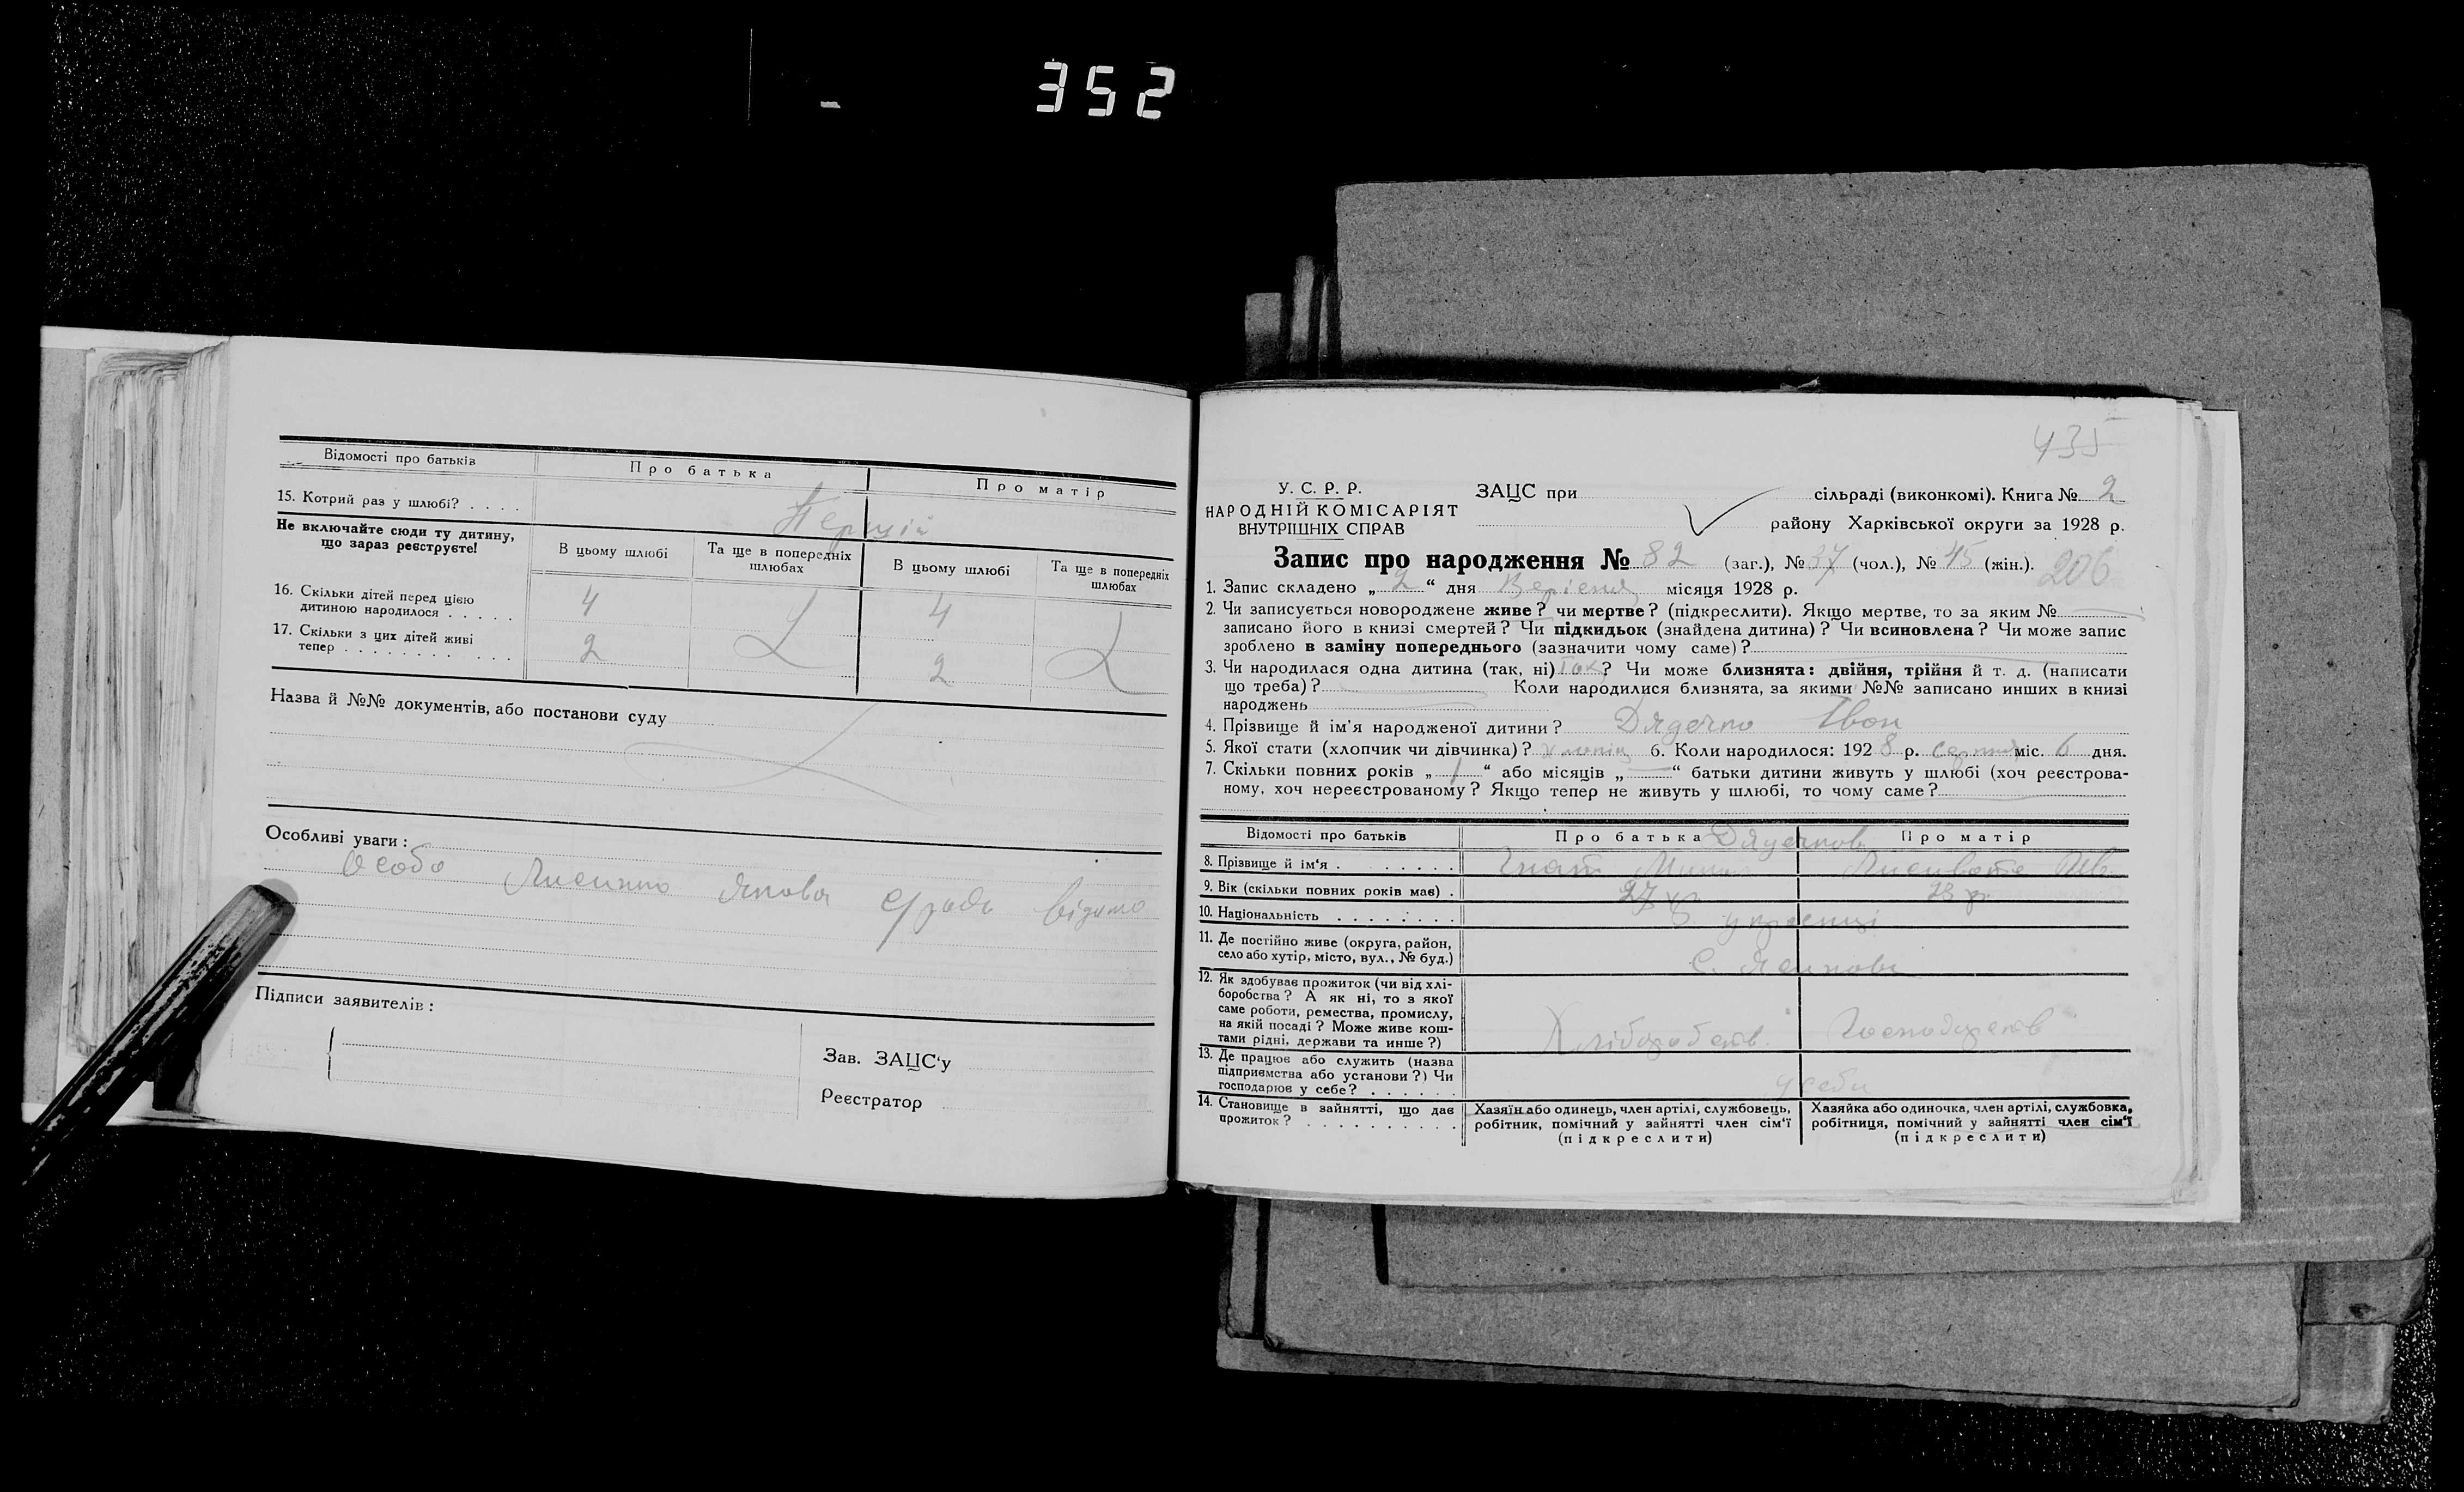 352
Відомості про батьків
Про батька
Про матір
15. Котрий раз у шлюбі? . . . .
Перший
Не включайте сюди ту дитину,
що зараз реєструєте!
В цьому шлюбі
Та ще в попередніх
шлюбах
В цьому шлюбі
Та ще в попередніх
шлюбах
16. Скільки дітей перед цією
дитиною народилося . . . . .
4
4
17. Скільки з цих дітей живі
тепер . . . . . . . . . . .
2
2
Назва й №№ документів, або постанови суду
Особливі уваги :
Особа
Підписи заявителів :
Зав. ЗАЦС'у
Реєстратор
435
У. С. Р. Р.
НАРОДНІЙ КОМІСАРІЯТ
ВНУТРІШНІХ СПРАВ
ЗАЦС при
сільраді (виконкомі). Книга № 2
району Харківської округи за 1928 р.
Запис про народження № 82 (заг.), № 37 (чол.), № 45 (жін.).
206
1. Запис складено „ 2 “ дня Вересня місяця 1928 р.
2. Чи записується новороджене живе? чи мертве? (підкреслити). Якщо мертве, то за яким №
записано його в книзі смертей? Чи підкидьок (знайдена дитина)? Чи всиновлена? Чи може запис
зроблено в заміну попереднього (зазначити чому саме)?
3. Чи народилася одна дитина (так, ні) так ? Чи може близнята: двійня, трійня й т. д. (написати
що треба)? Коли народилися близнята, за якими №№ записано инших в книзі
народжень
4. Прізвище й ім'я народженої дитини? Дядечко Іван
5. Якої стати (хлопчик чи дівчинка)? хлопець 6. Коли народилося: 1928 р. серпня міс. 6 дня.
7. Скільки повних років „ “ або місяців „ “ батьки дитини живуть у шлюбі (хоч реєстрова-
ному, хоч нереєстрованому? Якщо тепер не живуть у шлюбі, то чому саме?
Відомості про батьків
Про батька
Про матір
8. Прізвище й ім'я . . . . . . . . .
Гнат
9. Вік (скільки повних років має) .
27
10. Національність . . . . . . . .
українці
11. Де постійно живе (округа, район,
село або хутір, місто, вул., № буд.)
с.
12. Як здобуває прожиток (чи від хлі-
боробства? А як ні, то з якої
саме роботи, ремества, промислу,
на якій посаді? Може живе кош-
тами рідні, держави та инше?)
Хліборобств.
Господарств
13. Де працює або служить (назва
підприємства або установи?) Чи
господарює у себе? . . . . . .
у себи
14. Становище в зайнятті, що дає
прожиток? . . . . . . . . . .
Хазяїн або одинець, член артілі, службовець,
робітник, помічний у зайнятті член сім'ї
(підкреслити)
Хазяйка або одиночка, член артілі, службовка,
робітниця, помічний у зайнятті член сім'ї
(підкреслити)